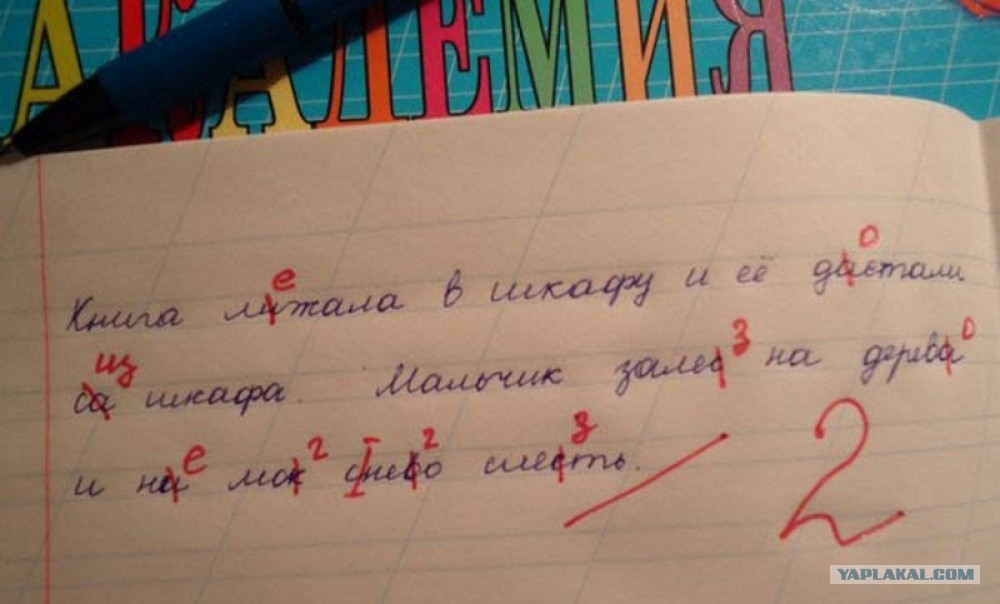 АКАДЕМИЯ
е о
Книга лижала в шкафу и её дастали
из з о
са шкафа. Мальчик залес на дерева
е г г з
и на мок снево слесть.
2
YAPLAKAL.COM